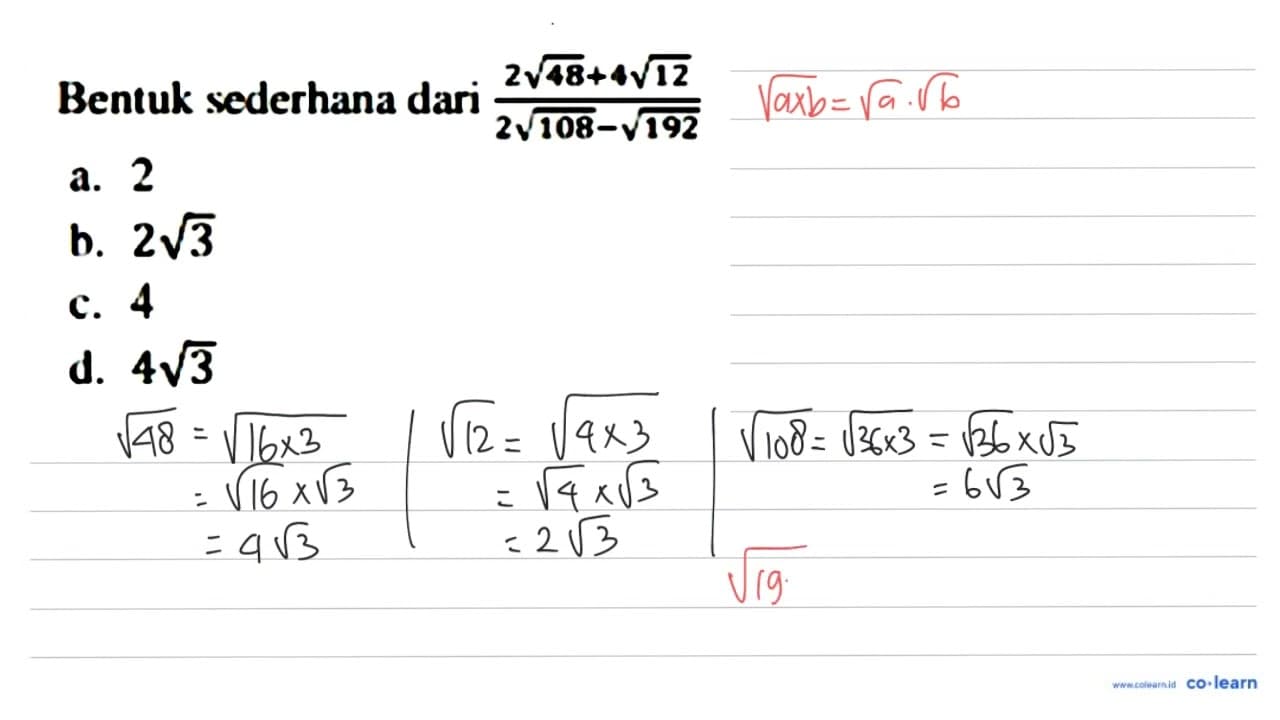 Bentuk sederhana dari (2√48+4√12)/(2√108−√192)
√axb = √a . √b
a. 2
b. 2√3
c. 4
d. 4√3
√48 = √16×3
= √16 × √3
= 4√3
√12 = √4×3
= √4 × √3
= 2√3
√108 = √36×3 = √36 × √3
= 6√3
√19
www.colearn.id co·learn